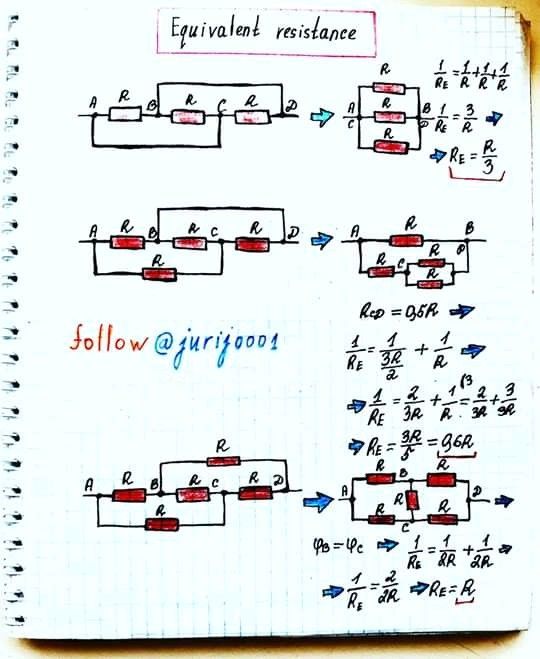 Equivalent resistance
A R B R C R D
R
A C R B D
R
1/RE = 1/R + 1/R + 1/R
1/RE = 3/R
RE = R/3
A R B R C R D
R
A R B
R C R D
R
RCD = 0,5R
1/RE = 1/(3R/2) + 1/R
follow @jurij0001
1/RE = 2/3R + 1/R \3 = 2/3R + 3/3R
RE = 3R/5 = 0,6R
R
A R B R C R D
R
R B R
A R D
R C R
φB = φC
1/RE = 1/2R + 1/2R
1/RE = 2/2R
RE = R